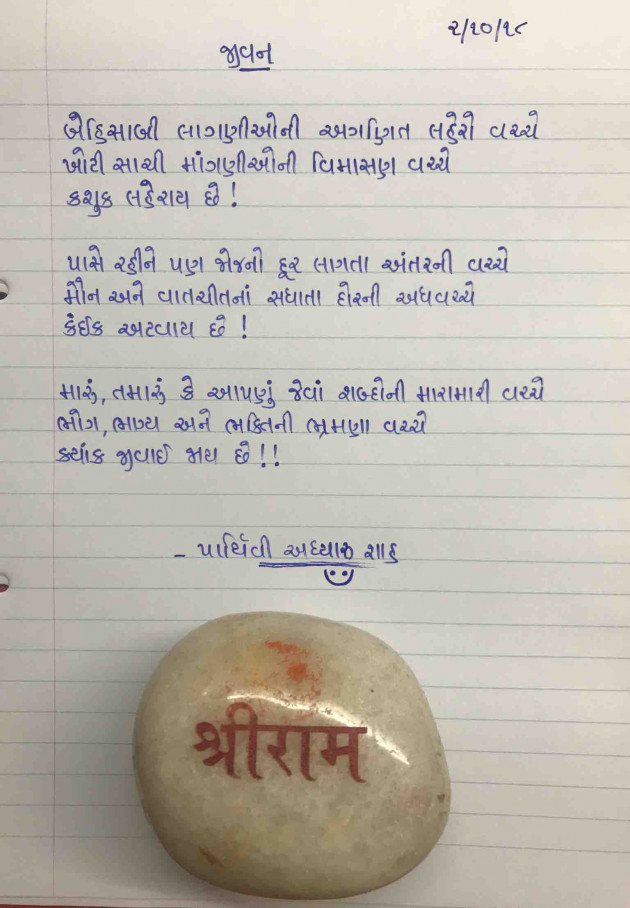 ૨/૧૦/૧૮
જીવન
બેહિસાબી લાગણીઓની અગણિત લહેરો વચ્ચે
ખોટી સાચી માંગણીઓની વિમાસણ વચ્ચે
કશુક લહેરાય છે!
પાસે રહીને પણ જોજનો દૂર લાગતા અંતરની વચ્ચે
મૌન અને વાતચીતનાં સધાતા દોરની અધવચ્ચે
કંઈક અટવાય છે!
મારું, તમારું કે આપણું જેવાં શબ્દોની મારામારી વચ્ચે
ભોગ, ભાગ્ય અને ભક્તિની ભ્રમણા વચ્ચે
ક્યાંક જીવાઈ જાય છે!!
- પાર્થિવી અધ્યારુ શાહ
श्रीराम